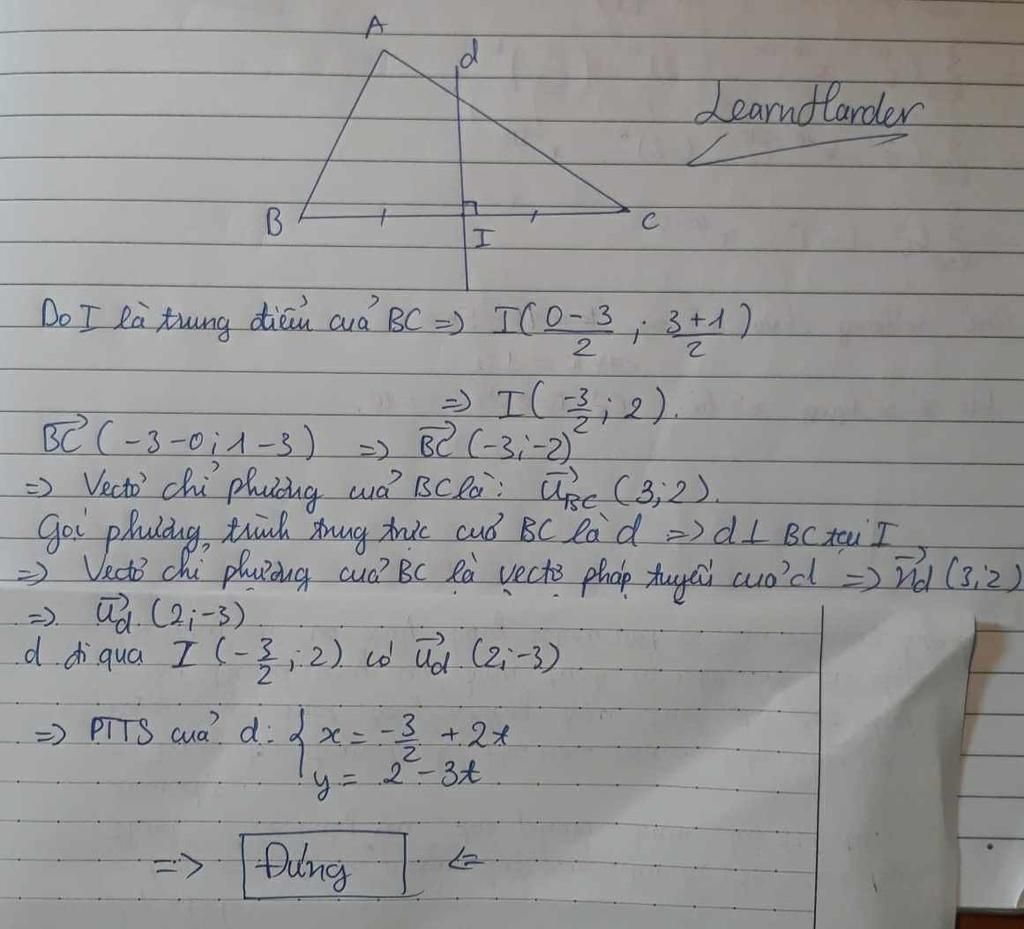 A
d
LearnHarder
B
I
C
Do I là trung điểm của BC => I(0-3/2 ; 3+1/2)
=> I(-3/2 ; 2).
BC→ (-3-0; 1-3) => BC→ (-3;-2)
=> Vectơ chỉ phương của BC là: u→BC (3;2).
Gọi phương trình trung trực của BC là d => d ⊥ BC tại I
=> Vectơ chỉ phương của BC là vectơ pháp tuyến của d => n→d (3;2)
=> u→d (2;-3)
d đi qua I (-3/2 ; 2) có u→d (2;-3)
=> PTTS của d: { x = -3/2 + 2t
y = 2 - 3t
=> Đúng <=